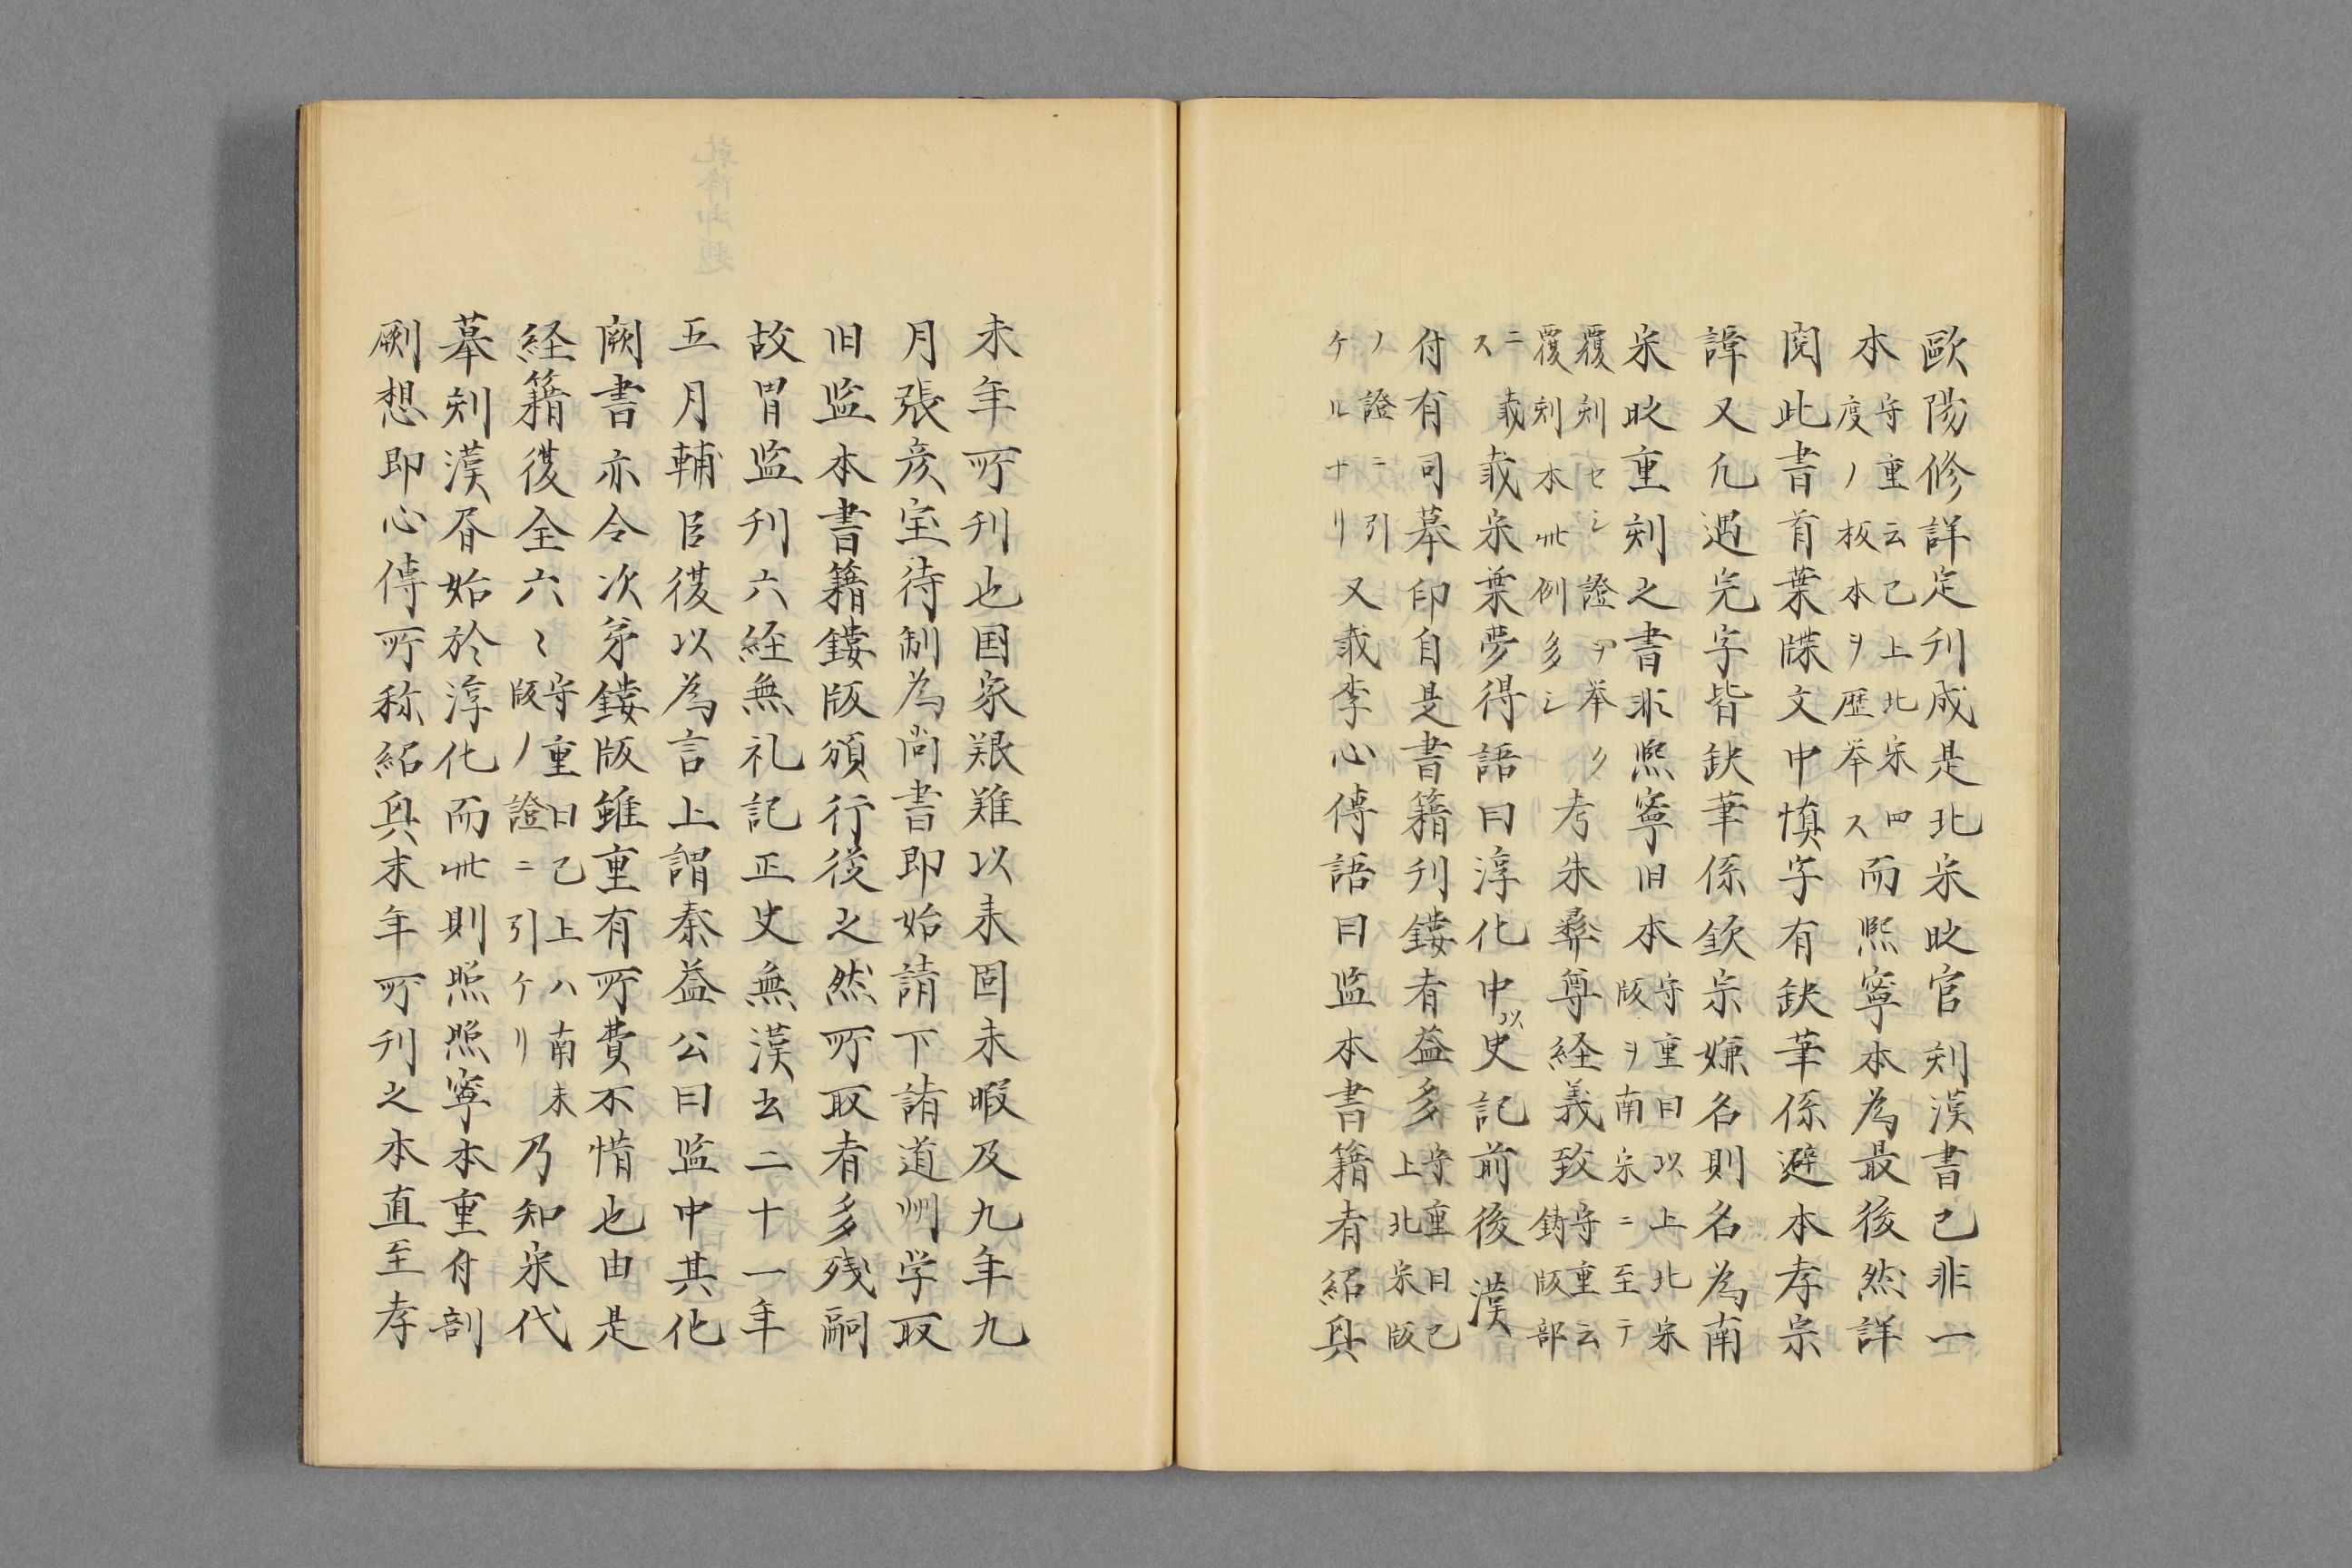 歐陽修詳定刊成是北宋时官刻漢書已非一
本守重云已上北宋四度ノ板本ヲ歴挙ス而熈寧本為最後然詳
閲此書首葉牒文中慎字有缺筆係避本孝宗
諱又凢遇完字皆缺筆係欽宗嫌名則名為南
宋时重刻之書非熈寧旧本守重曰以上北宋版ヲ南宋ニ至テ
覆刻セシ證ヲ举ク覆刻本此例多シ考朱彝尊経義致守重云鋳版部
ニ載ス載宋葉夢得語曰淳化中以史記前後漢
付有司摹印自是書籍刊鏤者益多守重曰已上北宋版
ノ證ニ引ケルナリ又載李心傳語曰监本書籍者紹兴
末年所刊也国家艱難以来固未暇及九年九
月張彦宝待制為尚書即始請下諸道州学取
旧监本書籍鏤版頒行從之然所取者多残嗣
故胃监刊六経無礼記正史無漢去二十一年
五月輔臣復以為言上謂秦益公曰监中其他
闕書亦令次第鏤版雖重有所費不惜也由是
経籍復全六〻守重曰已上ハ南末版ノ證ニ引ケリ乃知宋代
摹刻漢㫺始於淳化而此則熈熈寧本重付剖
劂想即心傳所称紹兴末年所刊之本直至孝